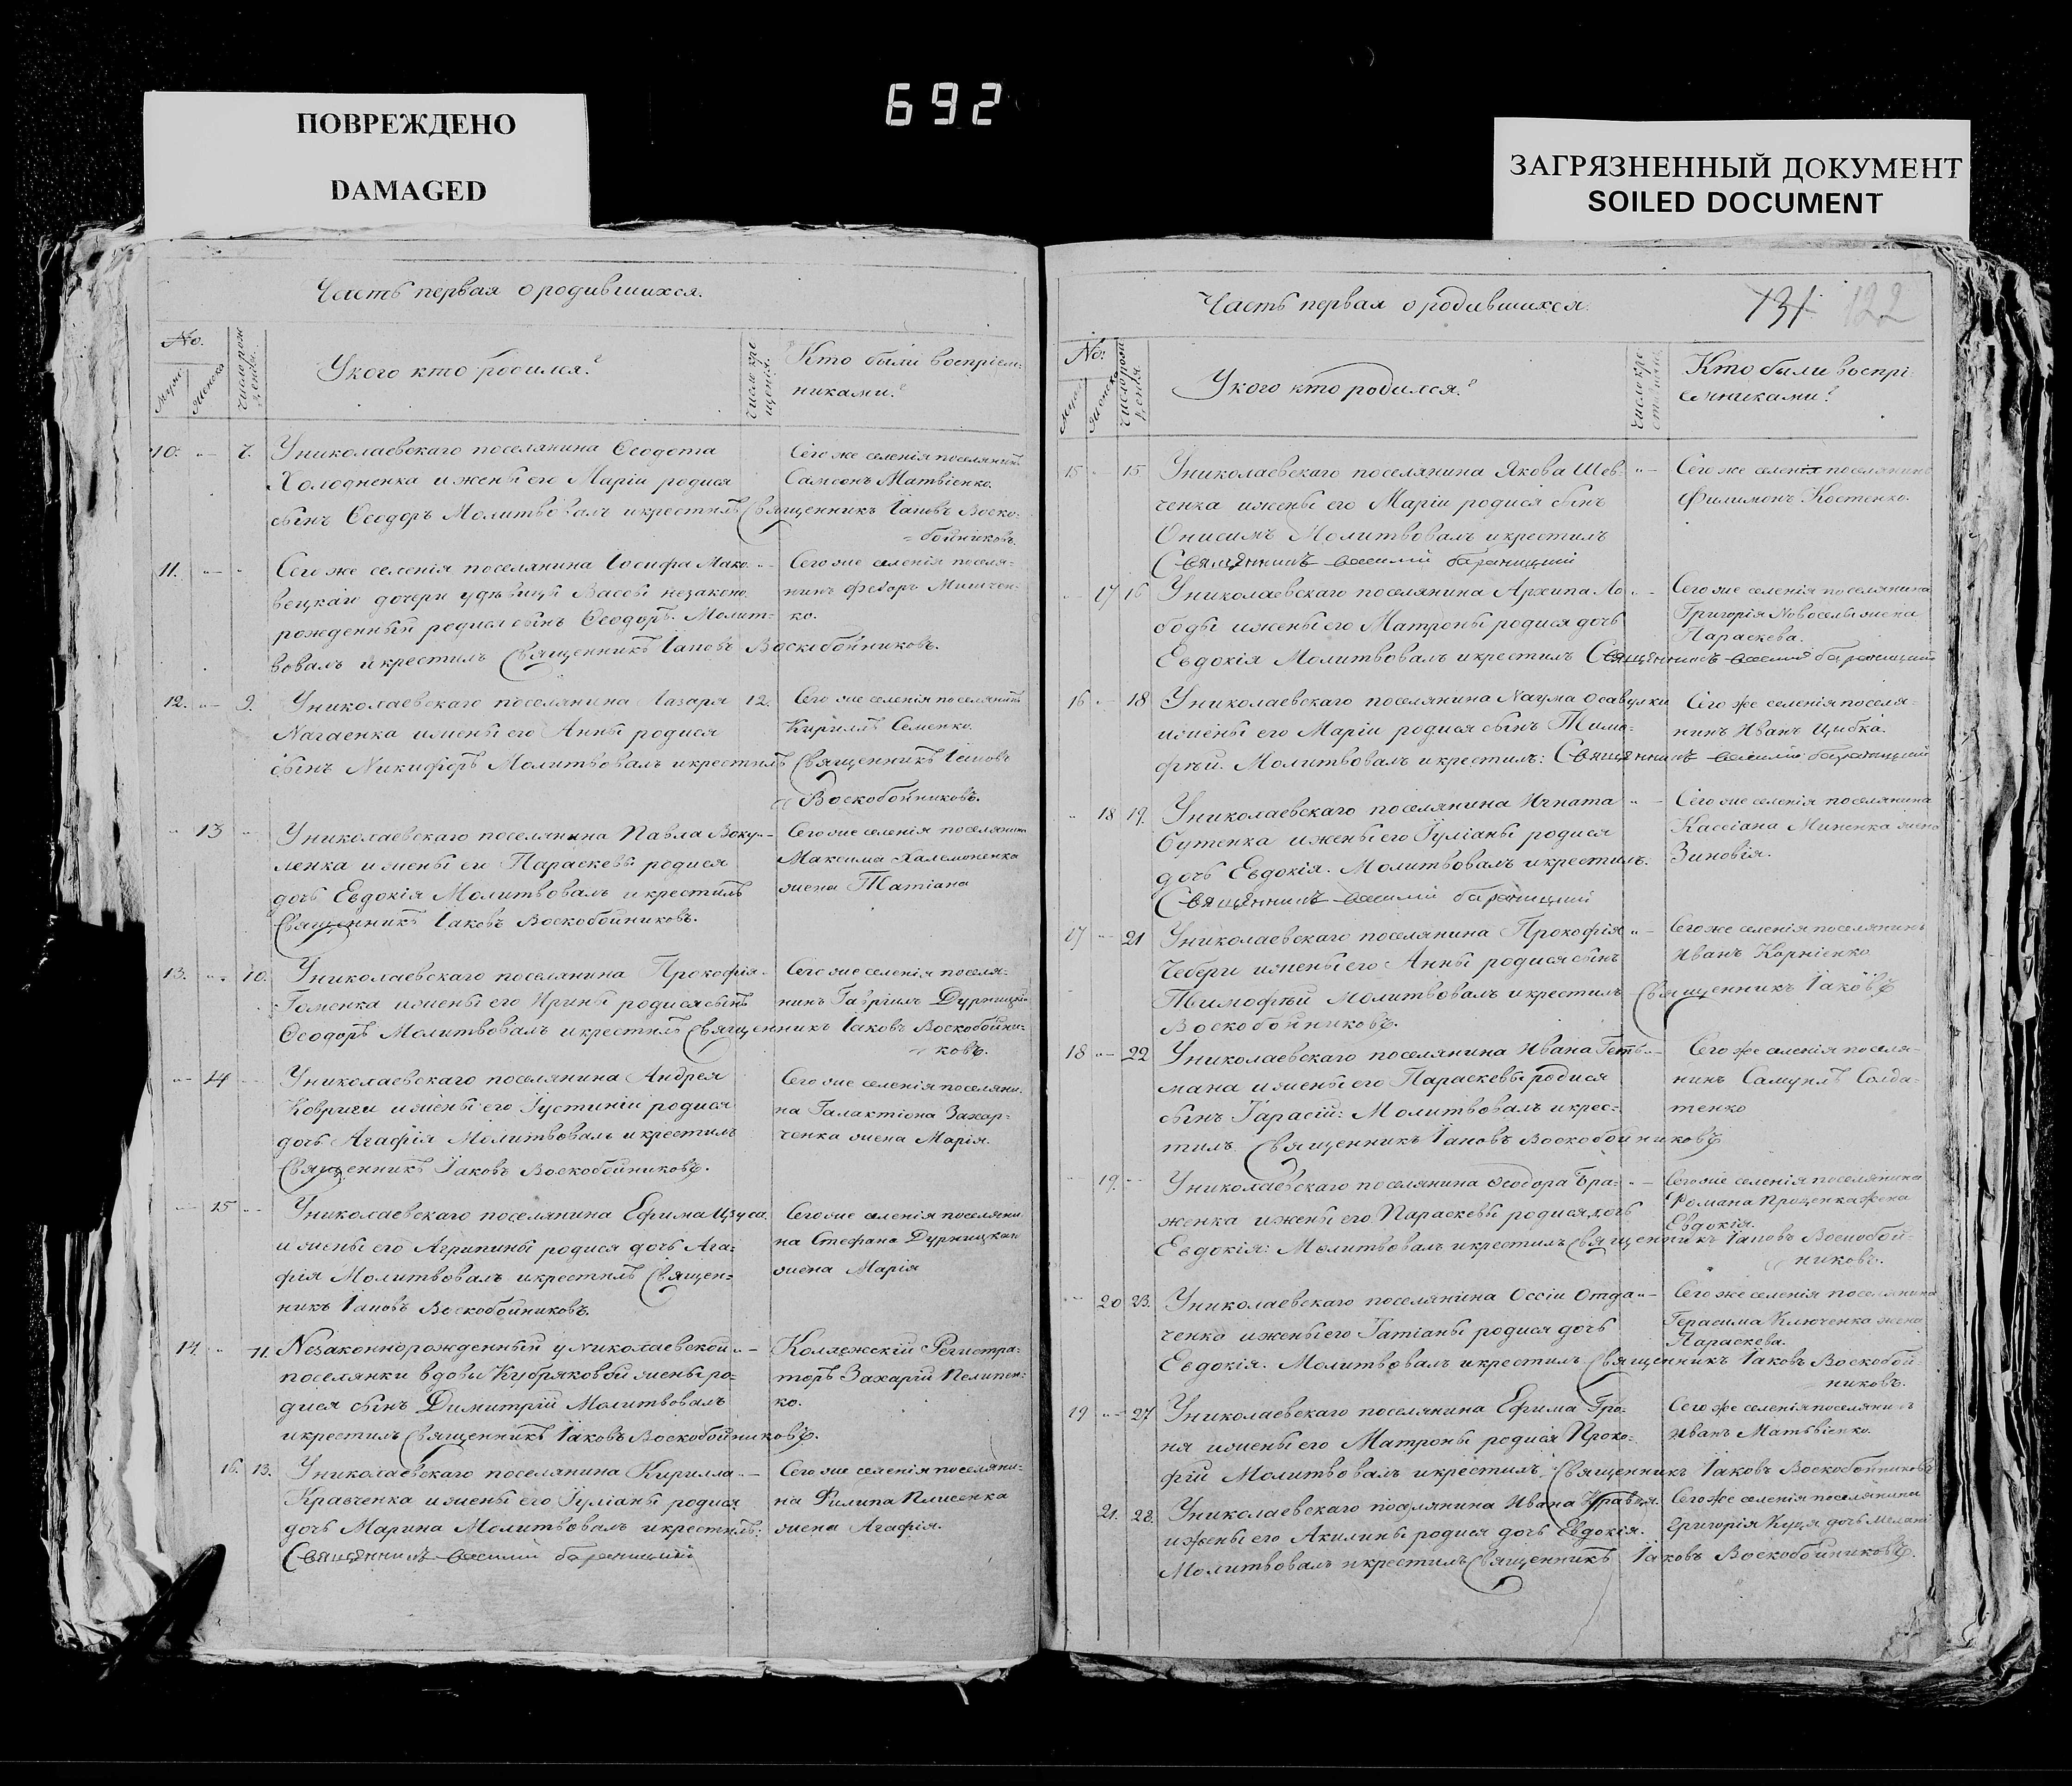 692
ПОВРЕЖДЕНО
DAMAGED
ЗАГРЯЗНЕННЫЙ ДОКУМЕНТ
SOILED DOCUMENT
Часть первая о родившихся.
No.
Укого кто родился?
Кто были воспріем:
никами?
10. „ 7. Униколаевскаго поселянина Ѳеодота
Холодненка и жены его Маріи родися
сынъ Ѳеодоръ Молитвовалъ и крестилъ Священникъ Іаковъ Воско-
бойниковъ.
Сего же селенія поселянинъ
Самсонъ Матвіенко.
11. „ „ Сего же селенія поселянина Іосифа Мако „
вецкаго дочери у дѣвицы Вассы незаконо
рожденный родился сынъ Ѳеодоръ. Молит-
вовалъ и крестилъ Священникъ Іаковъ Воскобойниковъ.
Сего же селенія поселя-
нинъ Федоръ
ко.
12. „ 9. Униколаевскаго поселянина Лазаря 12.
Нагаенка и жены его Анны родися
сынъ Никифоръ Молитвовалъ и крестилъ Священникъ Іаковъ
Воскобойниковъ.
Сего же селенія поселянинъ
Кириллъ Семенко.
„ 13 „ Униколаевскаго поселянина Павла Воку „
ленка и жены его Параскевы родися
дочь Евдокія Молитвовалъ и крестилъ
Священникъ Іаковъ Воскобойниковъ.
Сего же селенія поселянина
Максима
жена Татіана
13. „ 10. Униколаевскаго поселянина Прокофія
Гоменка и жены его Ирины родися сынъ
Ѳеодоръ Молитвовалъ и крестилъ Священникъ Іаковъ Воскобойни-
ковъ.
Сего же селенія поселя-
нинъ Гавріилъ
„ 14 „ Униколаевскаго поселянина Андрея
Ковриги и жены его Іустиніи родися
дочь Агафія Молитвовалъ и крестилъ
Священникъ Іаковъ Воскобойниковъ.
Сего же селенія поселяни-
на Галактіона Захар-
ченка жена Марія.
„ 15 „ Униколаевскаго поселянина Ефима
и жены его Агрипины родися дочь Ага-
фія Молитвовалъ и крестилъ Священ-
никъ Іаковъ Воскобойниковъ.
Сего же селенія поселяни
на Стефана
жена Марія
14. „ 11. Незаконнорожденный у Николаевской „
поселянки вдовы Кубряковой жены ро-
дися сынъ Димитрій Молитвовалъ
и крестилъ Священникъ Іаковъ Воскобойниковъ.
Коляжскій Регистра-
торъ Захарій Пелипен-
ко.
16. 13. Униколаевскаго поселянина Кирилла „
Кравченка и жены его Іуліаны родися
дочь Марина Молитвовалъ и крестилъ:
Священникъ Василій
Сего же селенія поселяни-
на Филипа Плисенка
жена Агафія.
Часть первая о родившихся.
131. 122
No:
Укого кто родился?
Кто были воспрі
емниками?
15 „ 15 Униколаевскаго поселянина Якова Шев- „
ченка и жены его Маріи родися сынъ
Онисимъ Молитвовалъ и крестилъ
Священникъ Василій
Сего же селенія поселянинъ
Филимонъ Костенко.
17 16 Униколаевскаго поселянина Архипа Ло „
боды и жены его Матроны родися дочь
Евдокія Молитвовалъ и крестилъ Священникъ Василій
Сего же селенія поселянина
Григорія Новоселы жена
Параскева.
16 „ 18 Униколаевскаго поселянина Наума Осавулки
и жены его Маріи родися сынъ Тимо-
фѣй. Молитвовалъ и крестилъ: Священникъ Василій
Сего же селенія поселя-
нинъ Иванъ Цибка.
„ 18 19. Униколаевскаго поселянина Игната „
Сутенка и жены его Іуліаны родися
дочь Евдокія. Молитвовалъ и крестилъ.
Священникъ Василій
Сего же селенія поселянина
Кассіана Миненка жена
Зиновія.
17 „ 21 Униколаевскаго поселянина Прокофія „
Чебери и жены его Анны родися сынъ
Тимофѣй Молитвовалъ и крестилъ Священникъ Іаковъ
Воскобойниковъ.
Сего же селенія поселянинъ
Иванъ Корніенко
18 „ 22 Униколаевскаго поселянина Ивана Геть „
мана и жены его Параскевы родися
сынъ Гарасій: Молитвовалъ и крес-
тилъ Священникъ Іаковъ Воскобойниковъ
Сего же селенія поселя-
нинъ Самуилъ Солда-
тенко
19. „ Униколаевскаго поселянина Ѳеодора Бра- „
женка и жены его Параскевы родися дочь
Евдокія: Молитвовалъ и крестилъ Священникъ Іаковъ Воскобой-
никовъ.
Сего же селенія поселянина
Романа Проценка жена
Евдокія.
„ 20 23. Униколаевскаго поселянина Оссіи Отда „
ченка и жены его Татіаны родися дочь
Евдокія. Молитвовалъ и крестилъ Священникъ Іаковъ Воскобой
никовъ.
Сего же селенія поселянина
Герасима Ключенка жена
Параскева.
19 „ 27 Униколаевскаго поселянина Ефима Гро-
ня и жены его Матроны родися Проко-
фій Молитвовалъ и крестилъ Священникъ Іаковъ Воскобойниковъ
Сего же селенія поселянинъ
Иванъ Матвіенко.
21. 28. Униколаевскаго поселянина Ивана Кравця.
и жены его Акилины родися дочь Евдокія.
Молитвовалъ и крестилъ Священникъ Іаковъ Воскобойниковъ.
Сего же селенія поселянина
Григорія Куця дочь